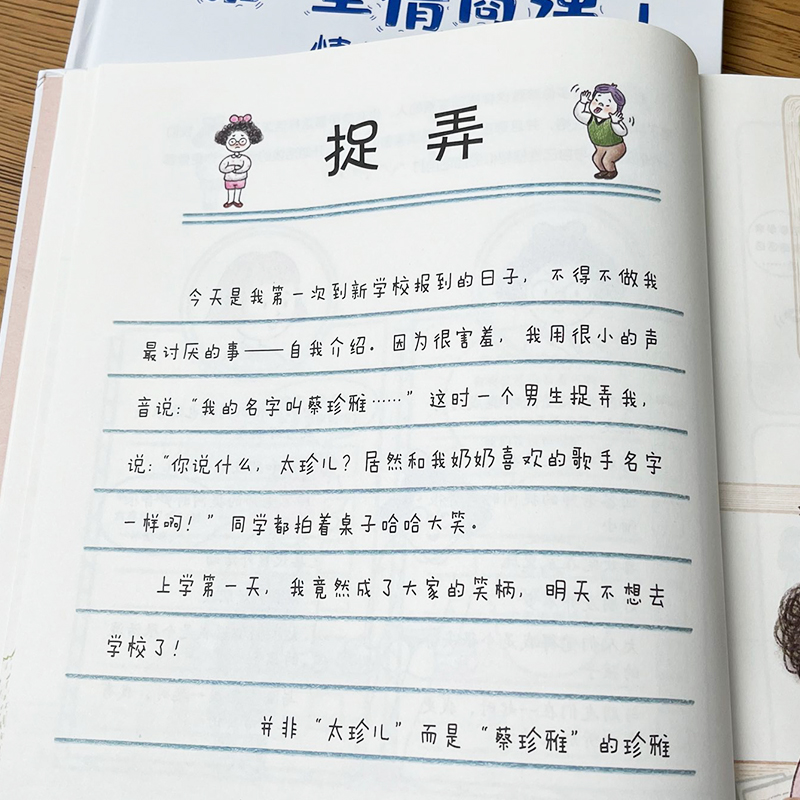 情商课！
捉弄
今天是我第一次到新学校报到的日子，不得不做我
最讨厌的事——自我介绍。因为很害羞，我用很小的声
音说：“我的名字叫蔡珍雅……”这时一个男生捉弄我，
说：“你说什么，太珍儿？居然和我奶奶喜欢的歌手名字
一样啊！”同学都拍着桌子哈哈大笑。
上学第一天，我竟然成了大家的笑柄，明天不想去
学校了！
并非“太珍儿”而是“蔡珍雅”的珍雅